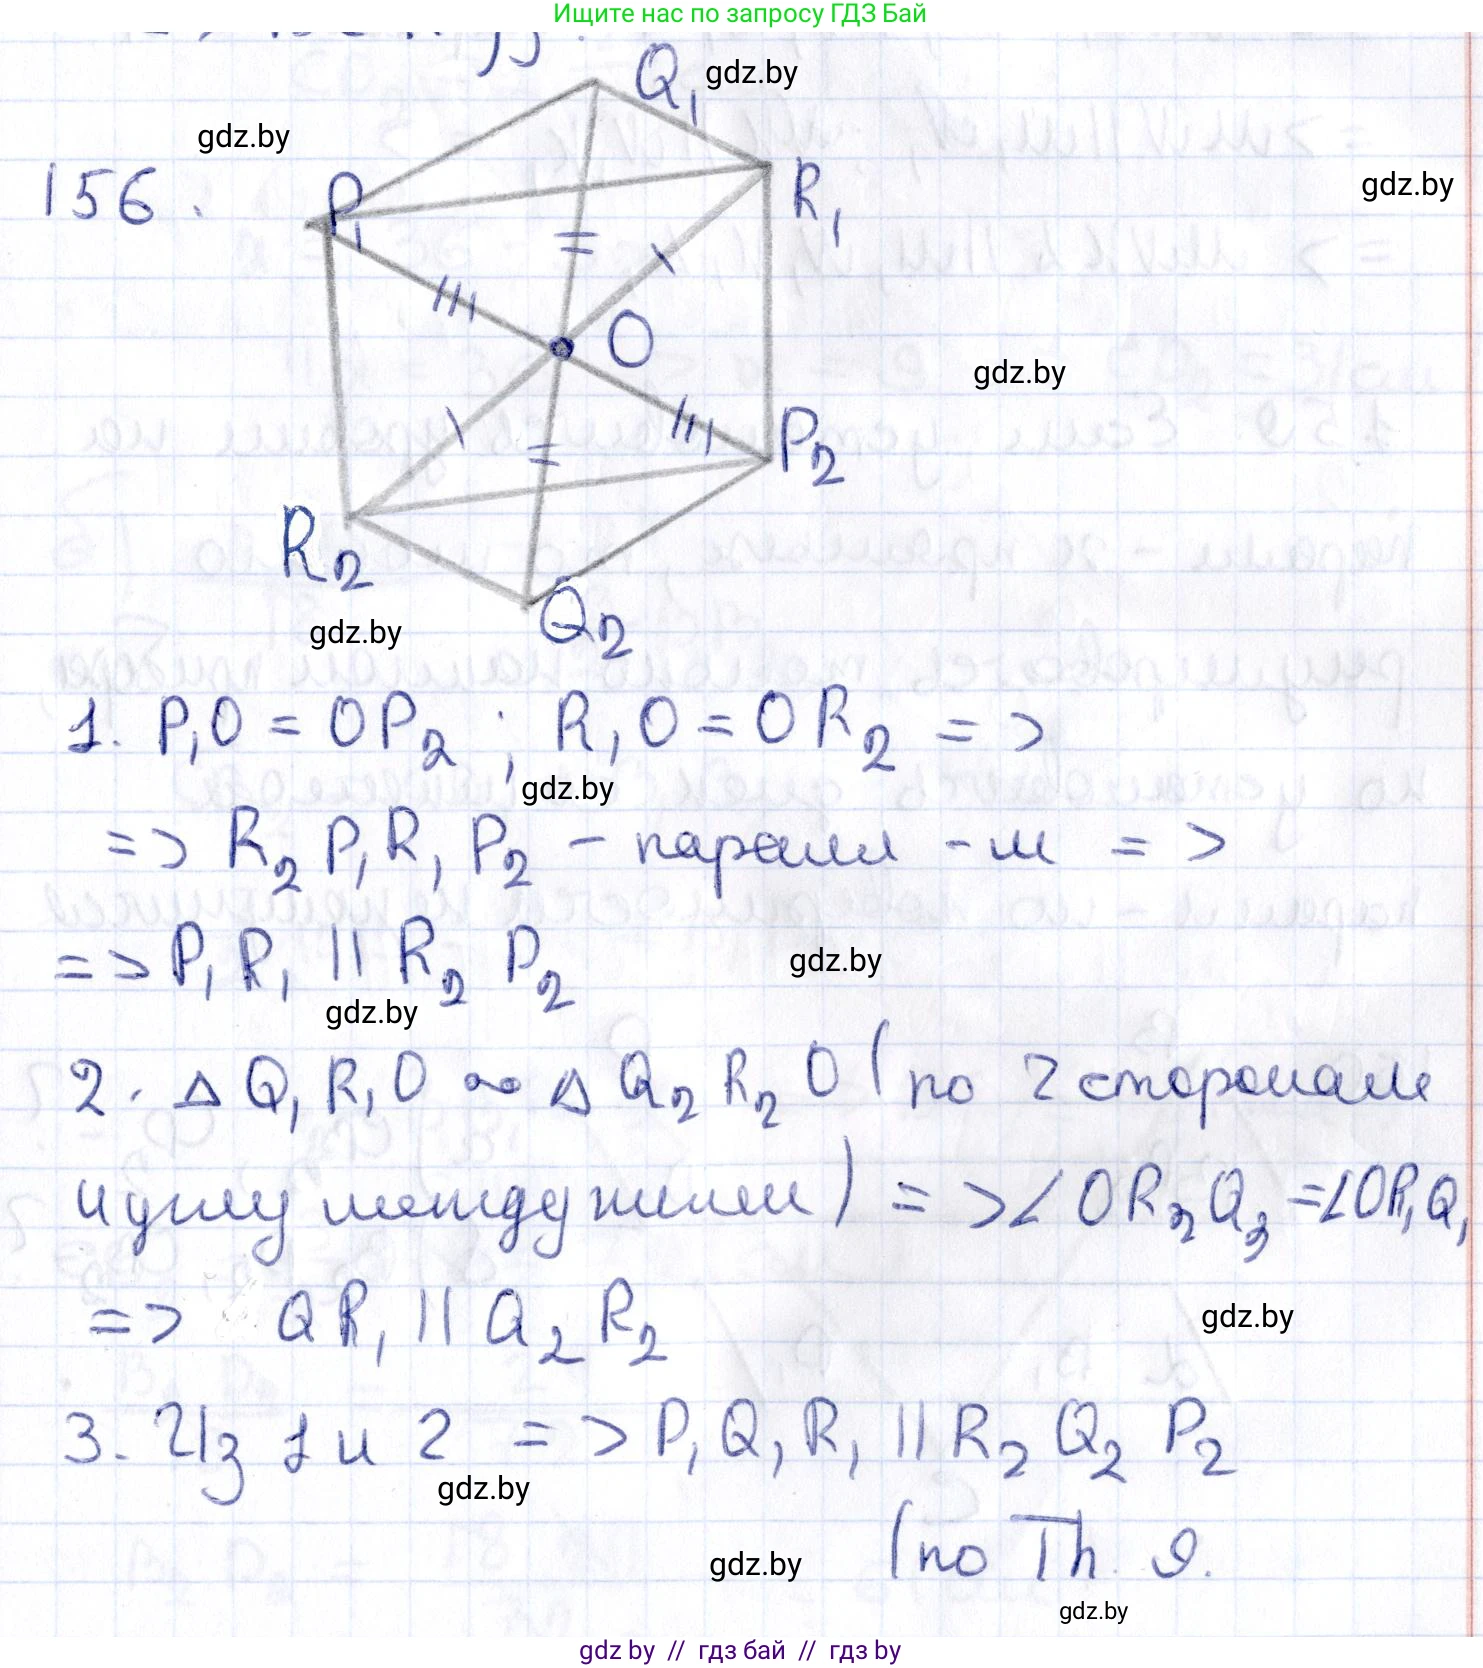 Ищите нас по запросу ГДЗ Бай
gdz.by
gdz.by
gdz.by
156.
Q₁
P₁
R₁
O
gdz.by
P₂
R₂
Q₂
gdz.by
1. P₁O = OP₂ ; R₁O = OR₂ =>
gdz.by
=> R₂P₁R₁P₂ - паралл-м =>
=> P₁R₁ || R₂P₂
gdz.by
gdz.by
2. Δ Q₁R₁O ~ Δ Q₂R₂O (по 2 сторонам
и углу между ними) => ∠OR₂Q₂ = ∠OR₁Q₁
=> QR₁ || Q₂R₂
gdz.by
3. Из 1 и 2 => P₁Q₁R₁ || R₂Q₂P₂
gdz.by
(по Th. 9.
gdz.by
gdz.by
gdz by // гдз бай // гдз by